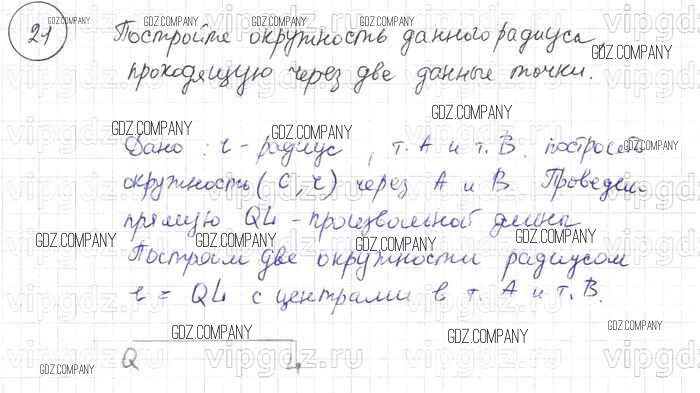 21 Постройте окружность данного радиуса,
проходящую через две данные точки.
Дано: r - радиус, т. А и т. В. построить
окружность (С, r) через А и В. Проведем
прямую QL - произвольной длины
Построим две окружности радиусом
r = QL с центрами в т. А и т. В.
Q L
GDZ.COMPANY
vipgdz.ru